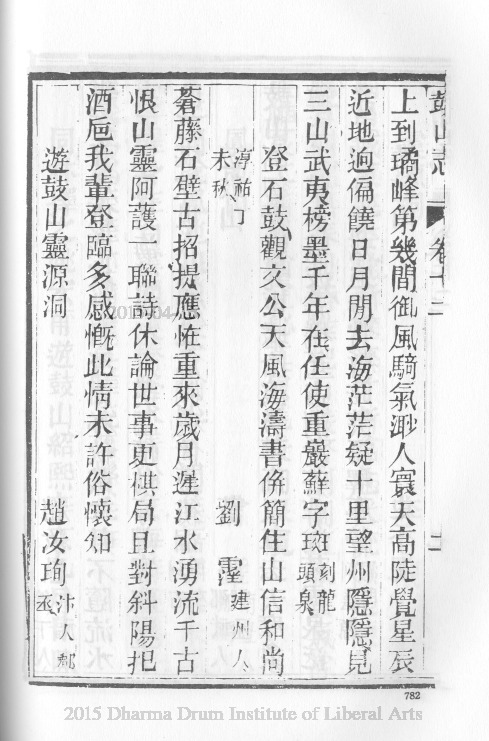 鼓山志 卷十二
上到磻峰第幾間御風騎氣渺人寰天高陡覺星辰
近地迥偏饒日月閒去海茫茫疑十里望州隱隱見
三山武夷榜墨千年在任使重巖蘚字斑刻龍頭泉
登石鼓觀文公天風海濤書倂簡住山信和尚
淳祐丁未秋 劉 霔建州人
蒼藤石壁古招提應怪重來歲月遲江水湧流千古
恨山靈阿護一聯詩休論世事更供局且對斜陽把
酒巵我輩登臨多感慨此情未許俗懷知
遊鼓山靈源洞 趙汝珣汴人郡丞
782
2015 Dharma Drum Institute of Liberal Arts